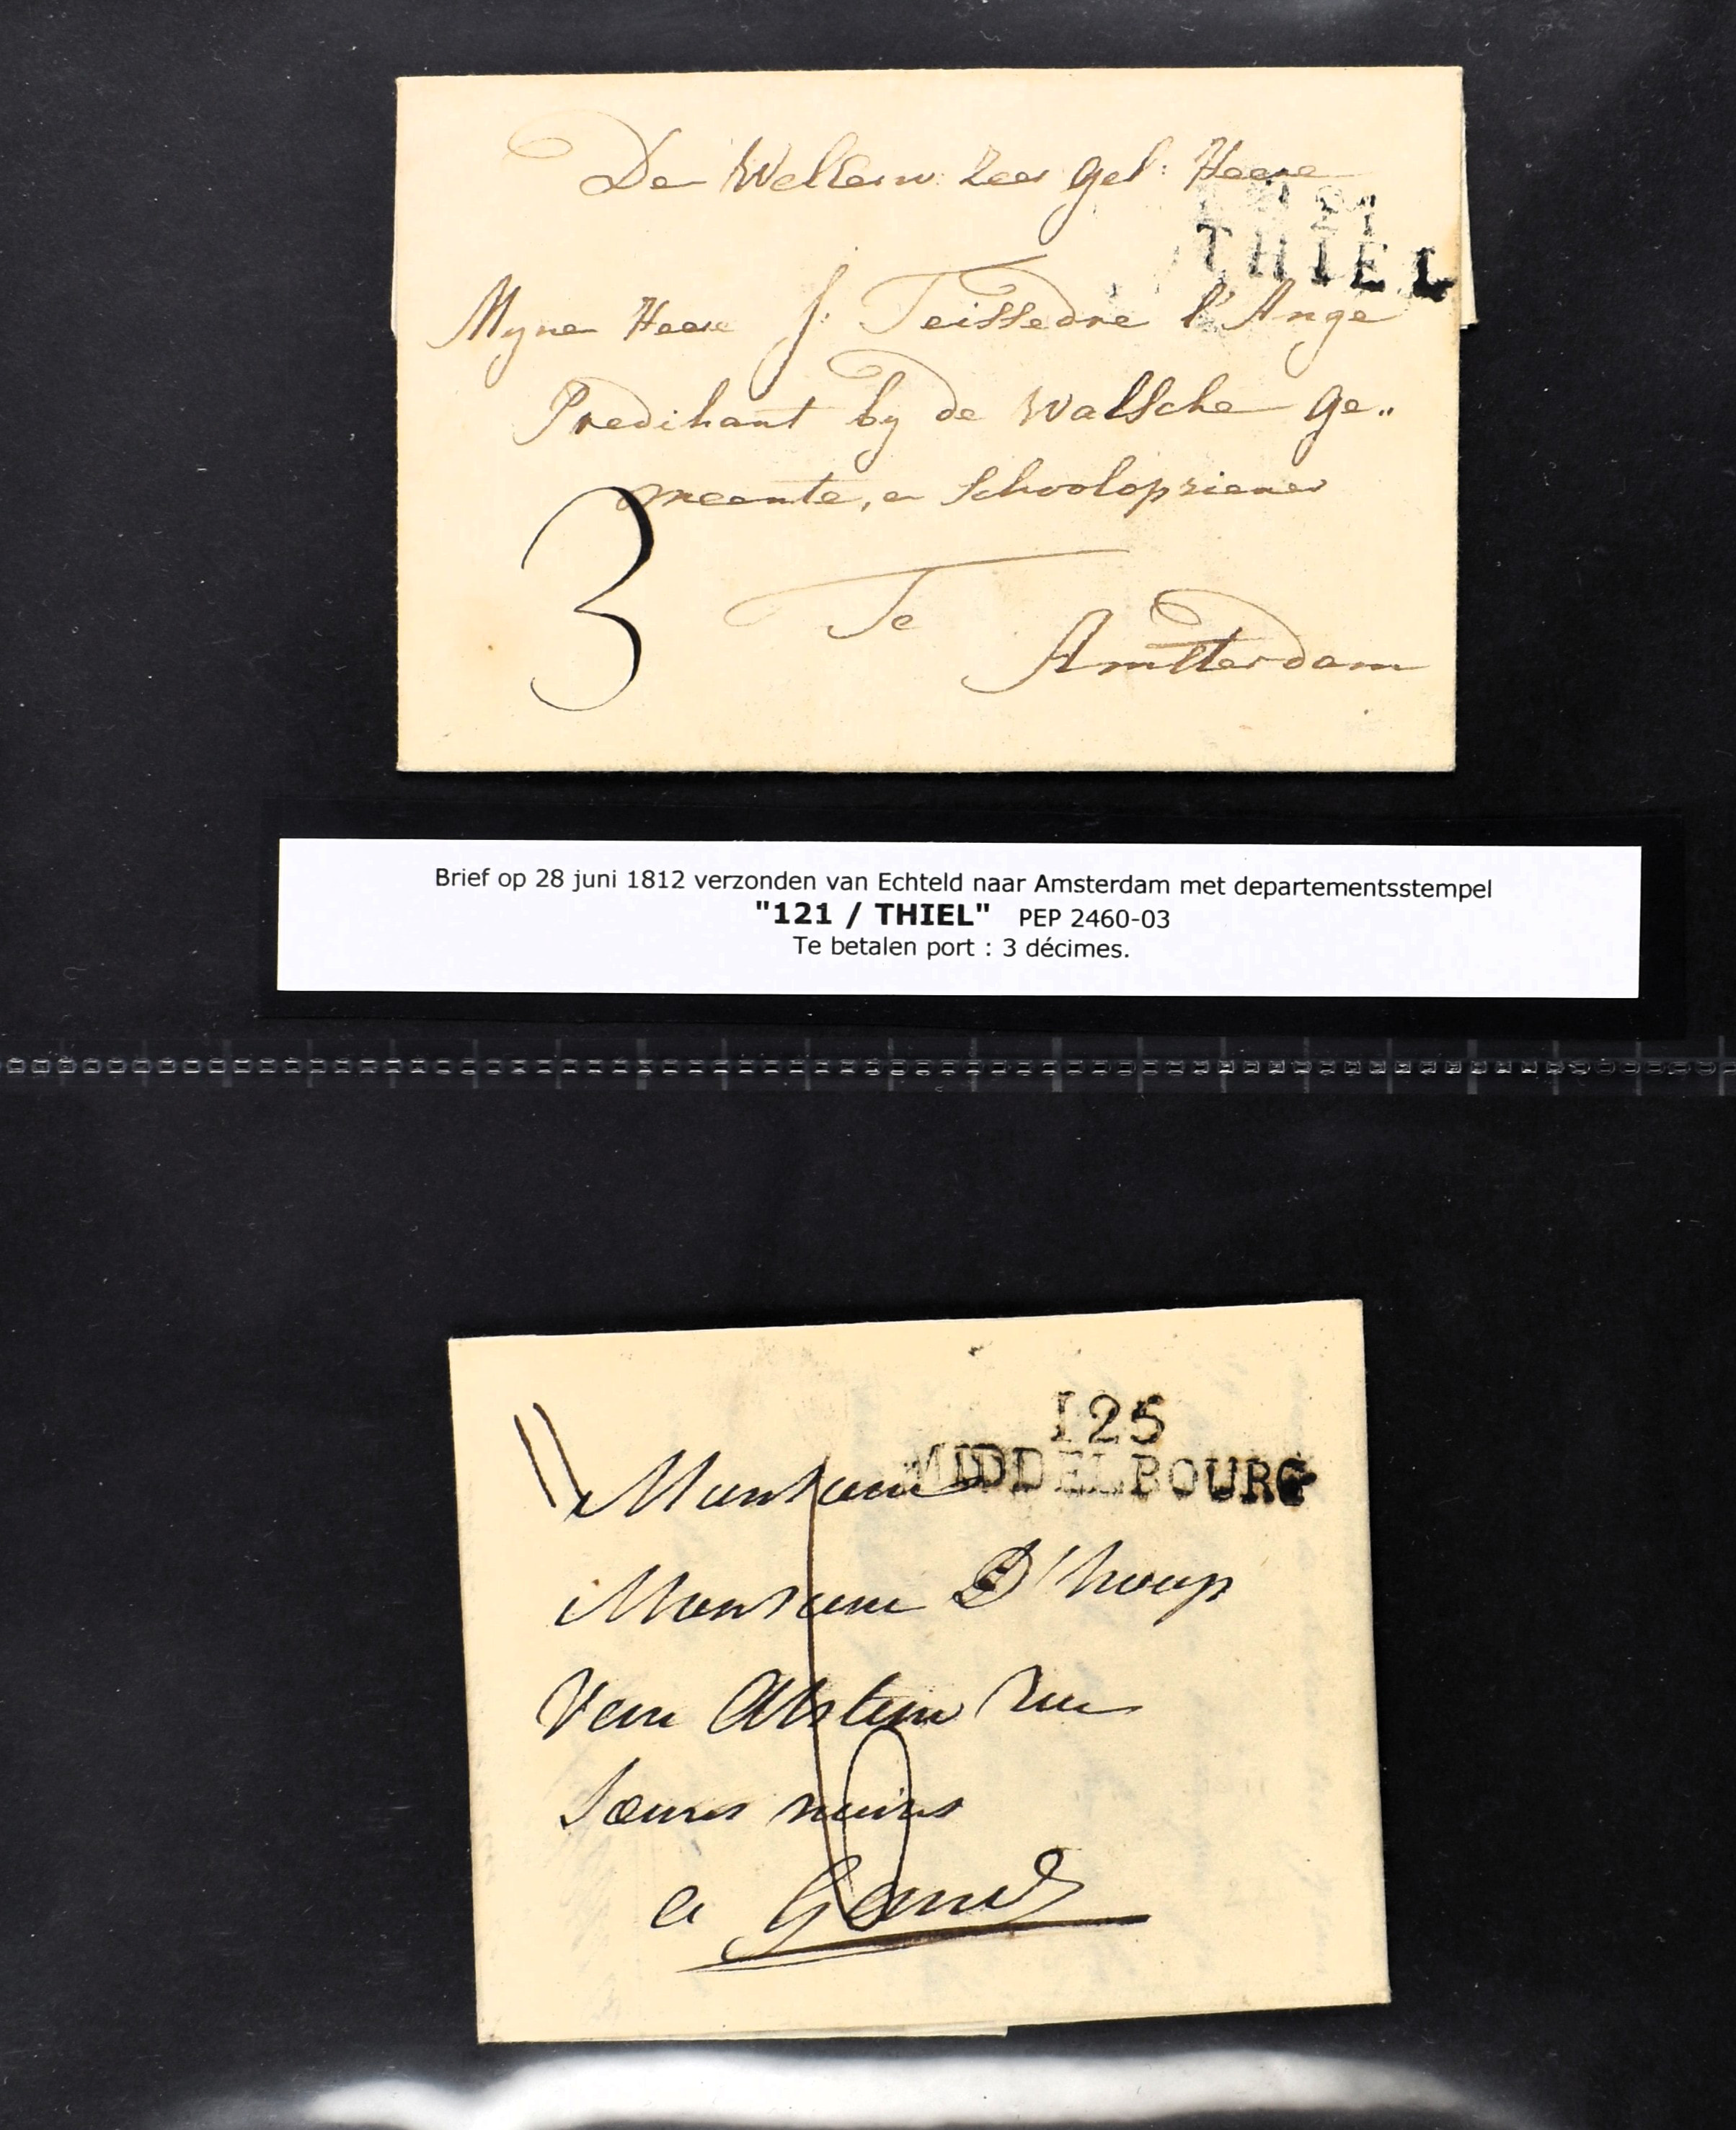 De WelEerw: Zeer Gel: Heere
121
THIEL
Myne Heere J: Teissedre l'Ange
Predikant by de Walsche Ge„
meente, en Schoolopziener
3
Te
Amsterdam
Brief op 28 juni 1812 verzonden van Echteld naar Amsterdam met departementsstempel
"121 / THIEL" PEP 2460-03
Te betalen port : 3 décimes.
125
MIDDELBOURG
Monsieur
Monsieur D'hoop
Van Alstein Rue
Soeurs noires
a Gand